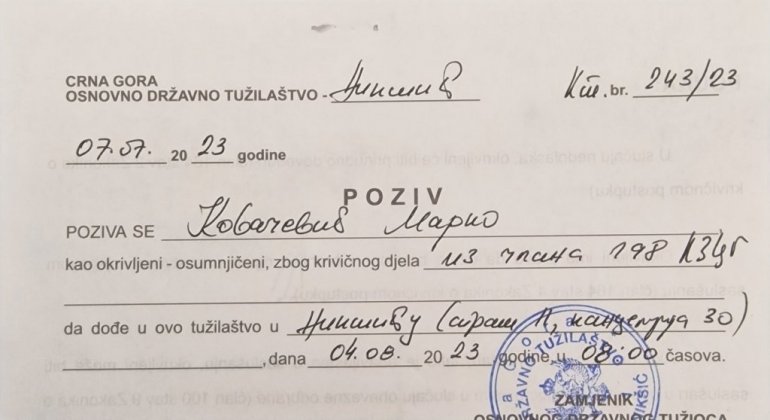 CRNA GORA
OSNOVNO DRŽAVNO TUŽILAŠTVO - Никшић
Кт. br. 243/23
07.07. 20 23 godine
POZIV
POZIVA SE Ковачевић Марко
kao okrivljeni - osumnjičeni, zbog krivičnog djela из члана 198 КЗЦГ
da dođe u ovo tužilaštvo u Никшићу (спрат II, канцеларија 30)
, dana 04.08. 20 23 godine, u 08:00 časova.
ZAMJENIK
OSNOVNOG DRŽAVNOG TUŽIOCA